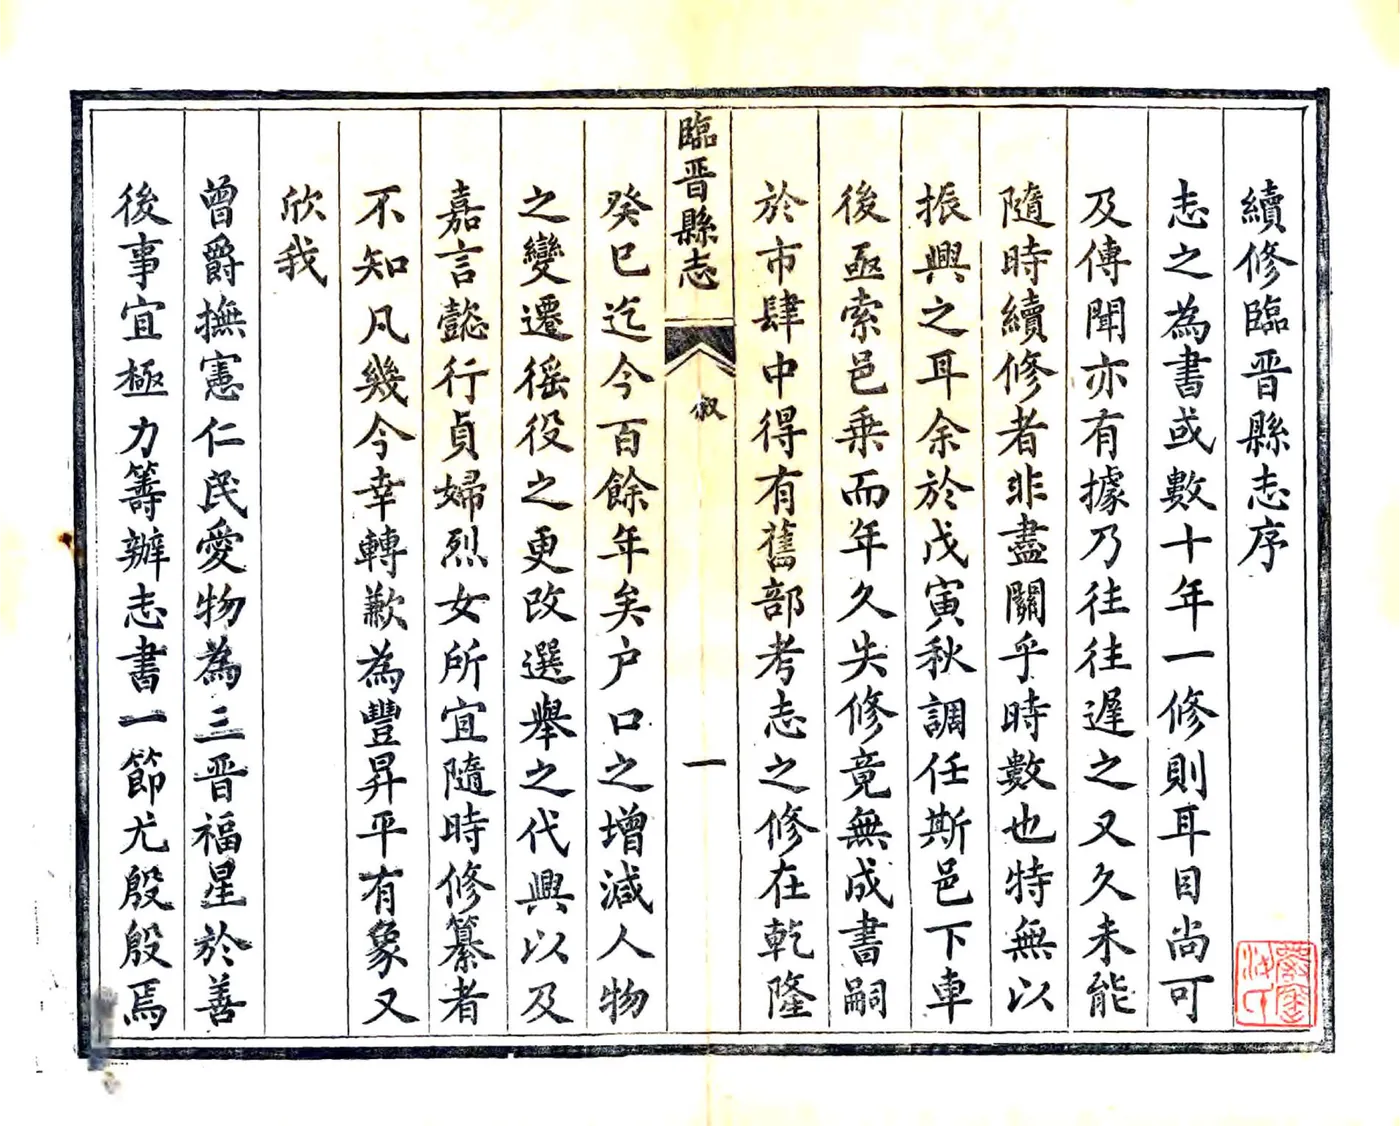 續修臨晉縣志序
志之為書或數十年一修則耳目尚可
及傳聞亦有據乃往往遲之又久未能
隨時續修者非盡關乎時數也特無以
振興之耳余於戊寅秋調任斯邑下車
後亟索邑乘而年久失修竟無成書嗣
於市肆中得有舊部考志之修在乾隆
臨晉縣志
敘
一
癸巳迄今百餘年矣户口之增減人物
之變遷徭役之更改選舉之代興以及
嘉言懿行貞婦烈女所宜隨時修纂者
不知凡幾今幸轉歉為豐昇平有象又
欣我
曾爵撫憲仁民愛物為三晉福星於善
後事宜極力籌辦志書一節尤殷殷焉